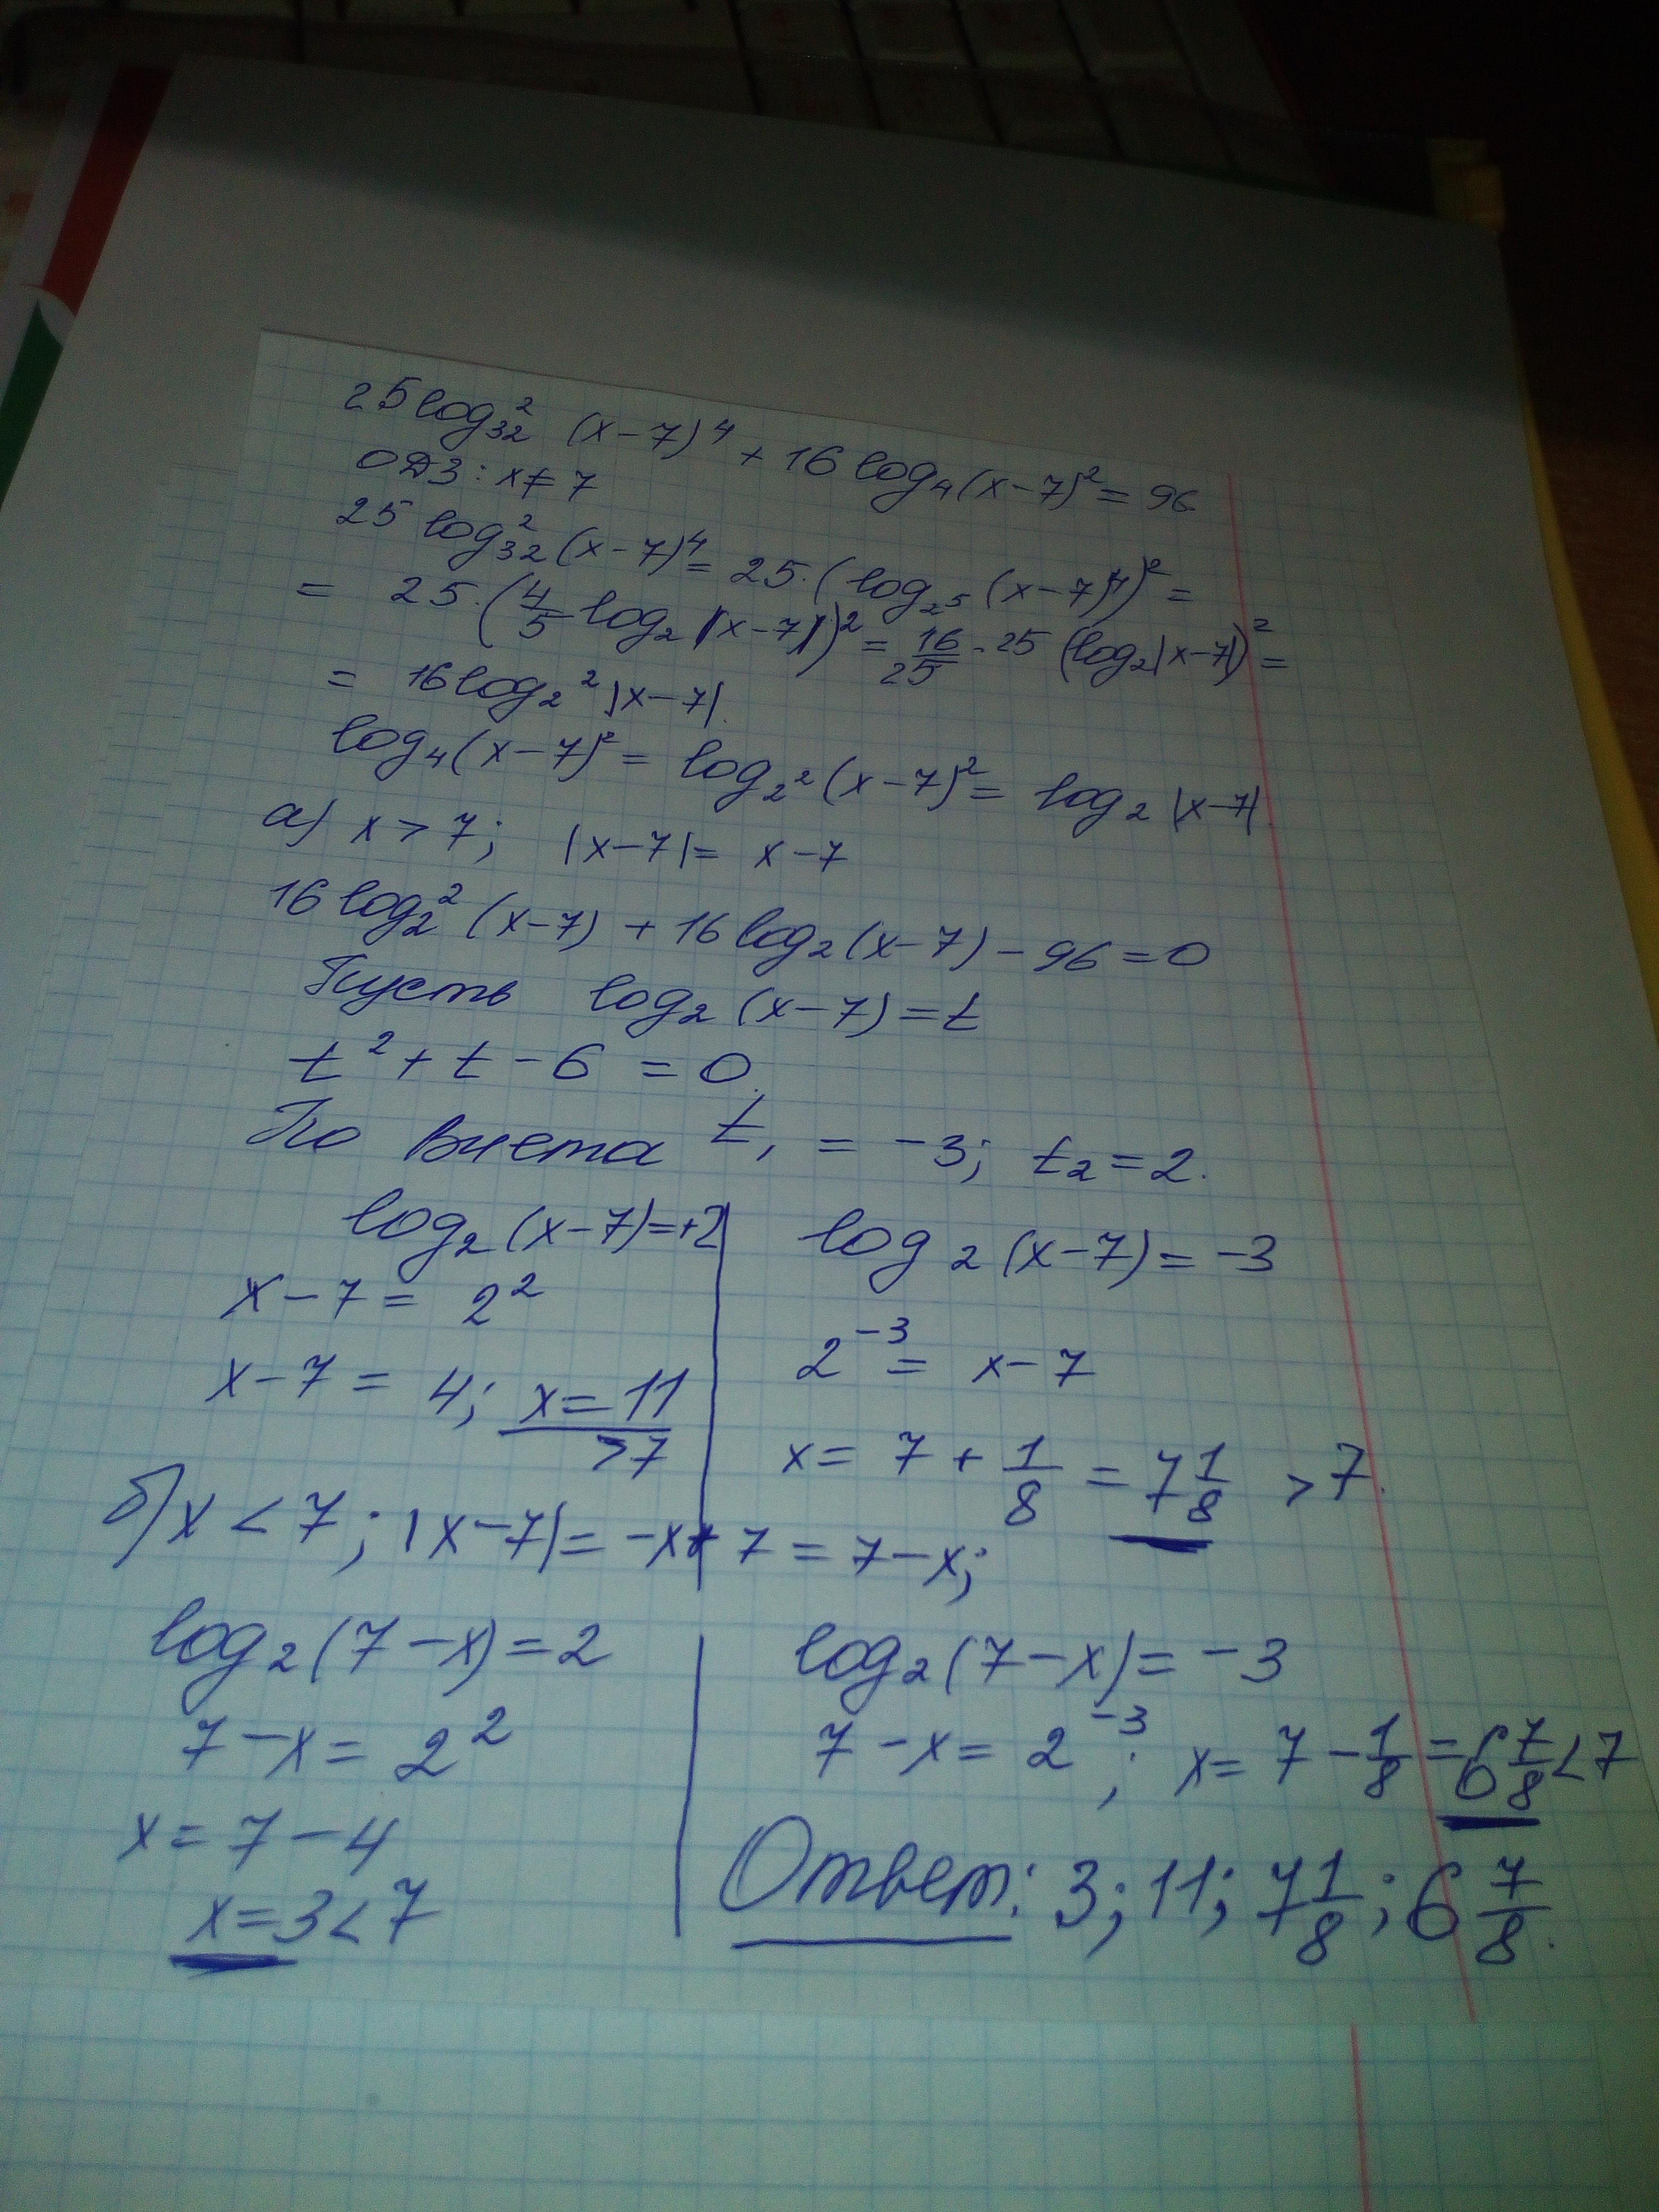 25 log₃₂² (x-7)⁴ + 16 log₄(x-7)² = 96
ОДЗ: x≠7
25 log₃₂² (x-7)⁴ = 25·(log₂⁵ (x-7)⁴)² =
= 25·(4/5 log₂ |x-7|)² = 16/25 · 25 (log₂|x-7|)² =
= 16 log₂² |x-7|.
log₄(x-7)² = log₂² (x-7)² = log₂ |x-7|.
а) x > 7; |x-7| = x-7
16 log₂² (x-7) + 16 log₂(x-7) - 96 = 0
Пусть log₂ (x-7) = t
t² + t - 6 = 0.
По Виета t₁ = -3; t₂ = 2.
log₂ (x-7) = +2 log₂ (x-7) = -3
x-7 = 2² 2⁻³ = x-7
x-7 = 4; x = 11 > 7 x = 7 + 1/8 = 7 1/8 > 7.
б) x < 7; |x-7| = -x+7 = 7-x;
log₂ (7-x) = 2 log₂ (7-x) = -3
7-x = 2² 7-x = 2⁻³; x = 7 - 1/8 = 6 7/8 < 7
x = 7-4
x = 3 < 7
Ответ: 3; 11; 7 1/8; 6 7/8.